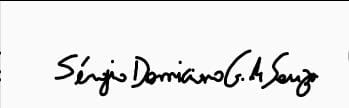 Sérgio Damiano G. M Souza